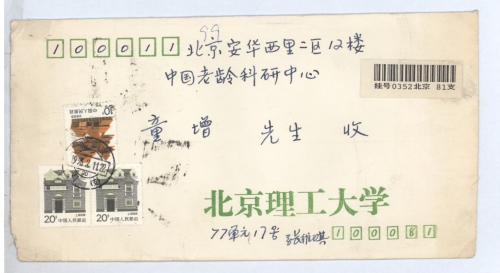 99
100011 北京安华西里二区12楼
中国老龄科研中心
挂号0352北京 81支
童增 先生 收
中国人民邮政
20分 中国人民邮政
20分 中国人民邮政
北京理工大学
77单元17号 张
100081